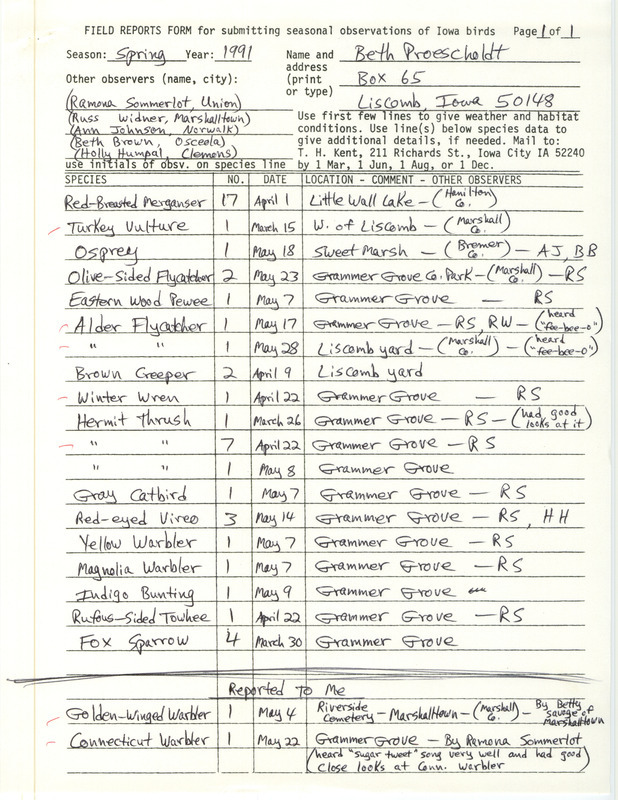 FIELD REPORTS FORM for submitting seasonal observations of Iowa birds Page 1 of 1
Season: Spring Year: 1991 Name and Beth Proescholdt
address
Other observers (name, city): (print Box 65
or type)
(Ramona Sommerlot, Union) Liscomb, Iowa 50148
(Russ Widner, Marshalltown) Use first few lines to give weather and habitat
(Ann Johnson, Norwalk) conditions. Use line(s) below species data to
(Beth Brown, Osceola) give additional details, if needed. Mail to:
(Holly Humpal, Clemens) T. H. Kent, 211 Richards St., Iowa City IA 52240
use initials of obsv. on species line by 1 Mar, 1 Jun, 1 Aug, or 1 Dec.
SPECIES NO. DATE LOCATION - COMMENT - OTHER OBSERVERS
Red-Breasted Merganser 17 April 1 Little Wall Lake - (Hamilton Co.)
Turkey Vulture 1 March 15 W. of Liscomb - (Marshall Co.)
Osprey 1 May 18 Sweet Marsh - (Bremer Co.) - AJ, BB
Olive-Sided Flycatcher 2 May 23 Grammer Grove Co. Park - (Marshall Co.) - RS
Eastern Wood Pewee 1 May 7 Grammer Grove - RS
Alder Flycatcher 1 May 17 Grammer Grove - RS, RW - (heard "fee-bee-o")
" " 1 May 28 Liscomb yard - (Marshall Co.) - (heard "fee-bee-o")
Brown Creeper 2 April 9 Liscomb yard
Winter Wren 1 April 22 Grammer Grove - RS
Hermit Thrush 1 March 26 Grammer Grove - RS - (had good looks at it)
" " 7 April 22 Grammer Grove - RS
" " 1 May 8 Grammer Grove
Gray Catbird 1 May 7 Grammer Grove - RS
Red-eyed Vireo 3 May 14 Grammer Grove - RS, HH
Yellow Warbler 1 May 7 Grammer Grove - RS
Magnolia Warbler 1 May 7 Grammer Grove - RS
Indigo Bunting 1 May 9 Grammer Grove
Rufous-Sided Towhee 1 April 22 Grammer Grove - RS
Fox Sparrow 4 March 30 Grammer Grove
Reported To Me
Golden-Winged Warbler 1 May 4 Riverside Cemetery - Marshalltown - (Marshall Co.) - By Betty Savage of Marshalltown
Connecticut Warbler 1 May 22 Grammer Grove - By Ramona Sommerlot
(heard "sugar tweet" song very well and had good
close looks at Conn. Warbler)